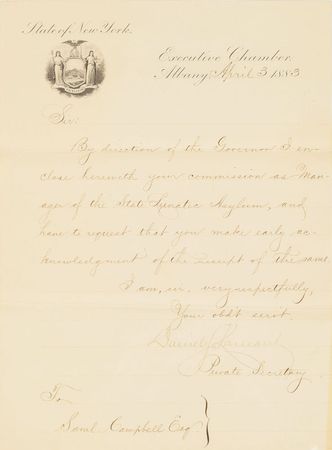 State of New York.
Executive Chamber.
Albany, April 3 1883
Sir:
By direction of the Governor I en-
close herewith your commission as Man-
ager of the State Lunatic Asylum, and
have to request that you make early ac-
knowledgment of the receipt of the same
I am, sir, very respectfully,
Your obdt servt.
Daniel S Lamont
Private Secretary
To
Saml Campbell Esq